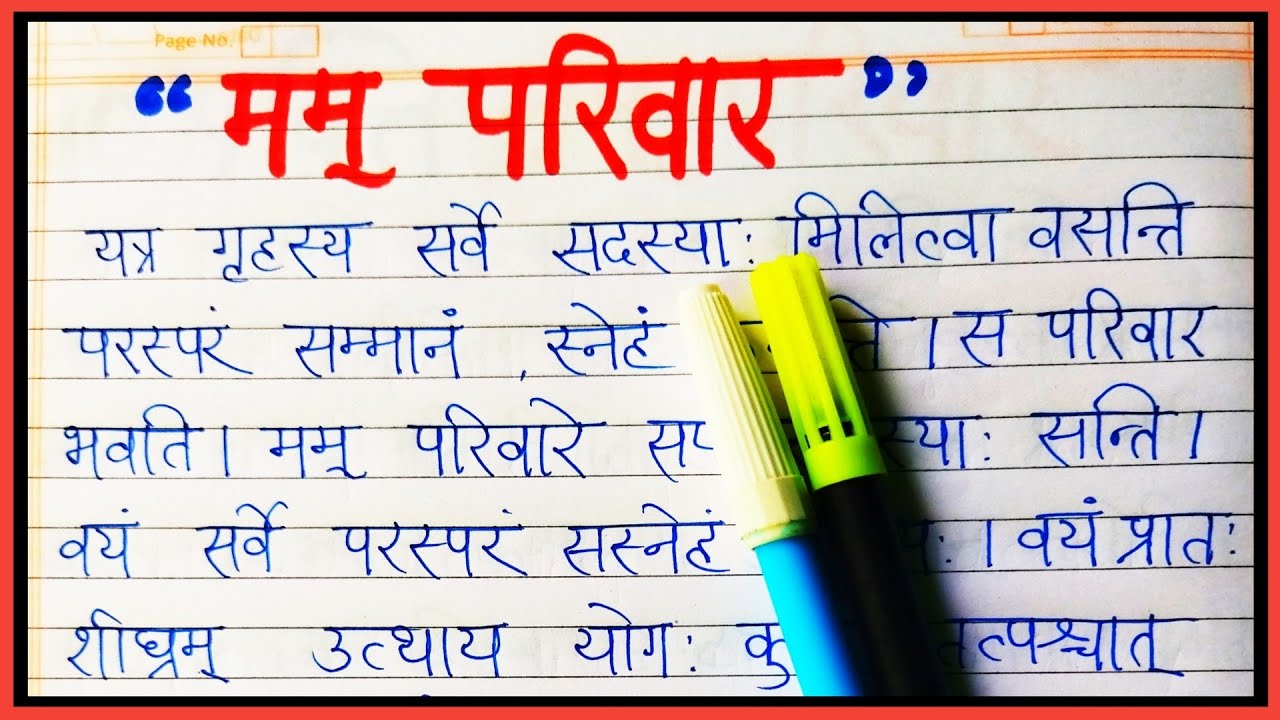 Page No.
“ ममू परिवार ”
यत्र गृहस्य सर्वे सदस्याः मिलित्वा वसन्ति
परस्परं सम्मानं , स्नेहं । स परिवार
भवति । ममू परिवारे सन्ति ।
वयं सर्वे परस्परं सस्नेहं । वयं प्रातः
शीघ्रम् उत्थाय योगः तत्पश्चात्